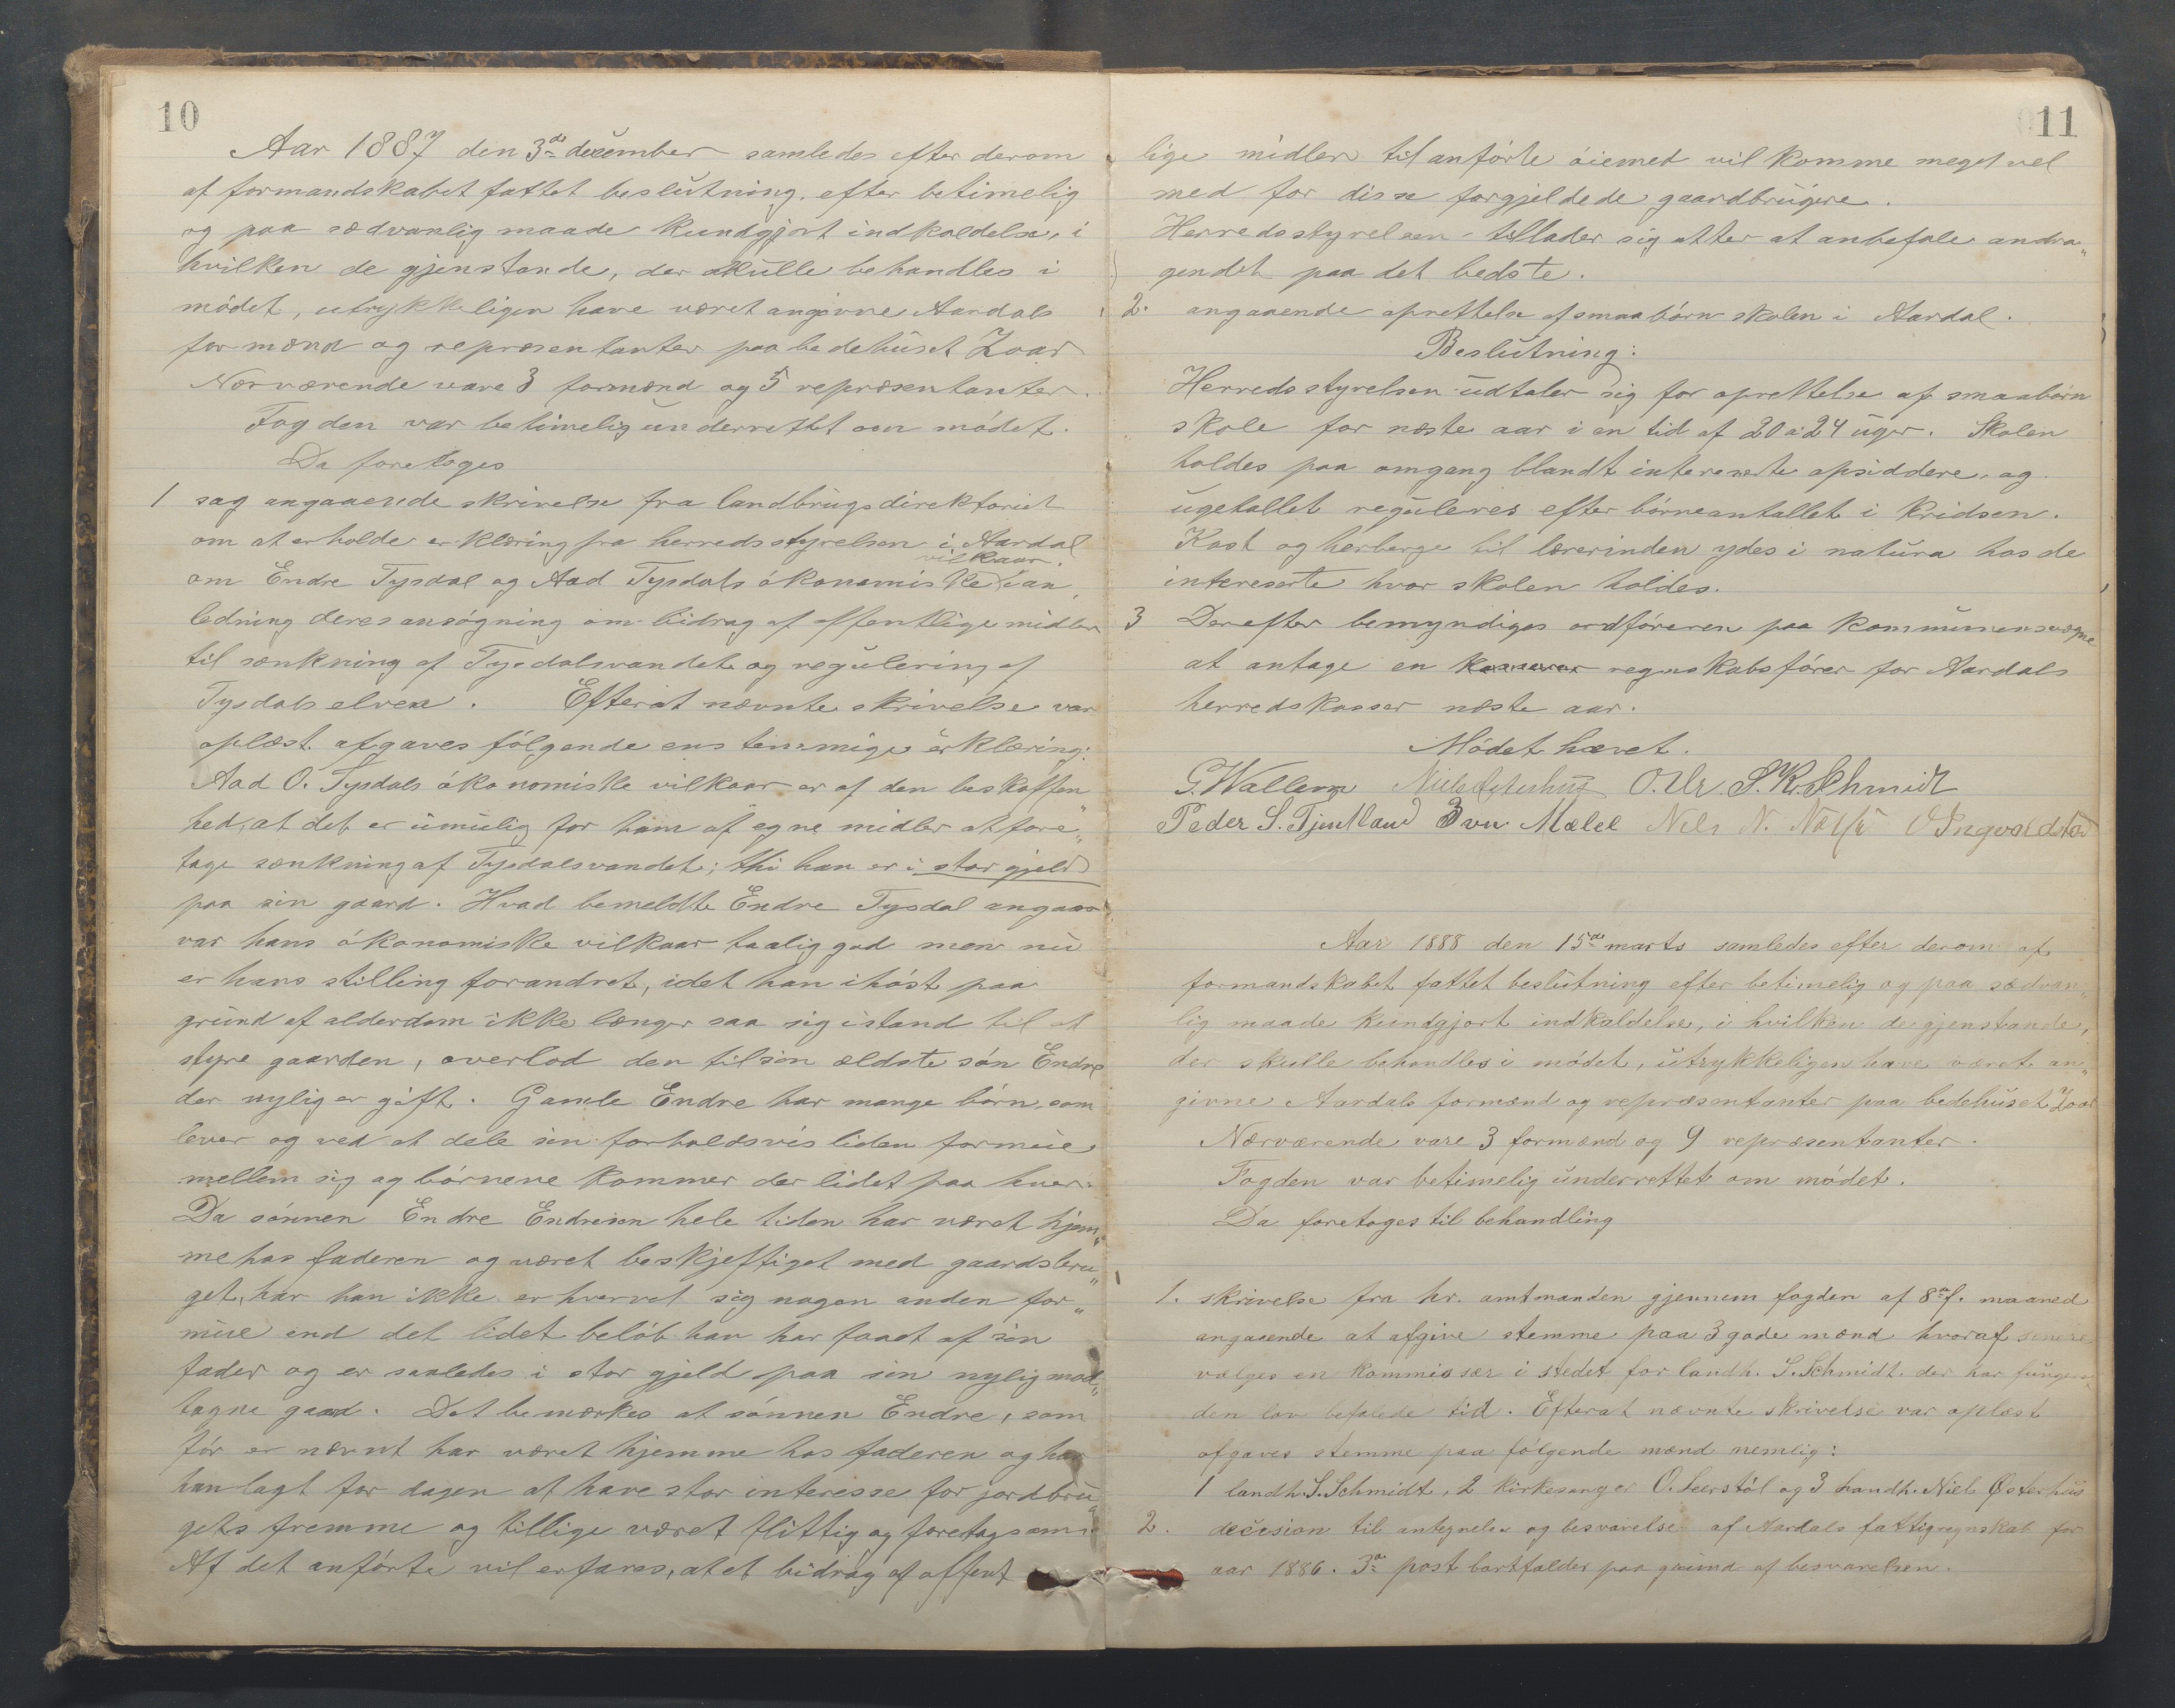 10
Aar 1887 den 3de december samledes efter derom
af formandskabet fattet beslutning, efter betimelig
og paa sædvanlig maade kundgjort indkaldelse, i
hvilken de gjenstande, der skulle behandles i
mødet, utrykkeligen have været angivne Aardals
formænd og repræsentanter paa bedehuset Zoar
Nærværende vare 3 formænd og 5 repræsentanter.
Fogden var betimelig underrettet om mødet.
Da foretoges
1 sag angaaende skrivelse fra landbrugsdirektøriet
om at erholde erklæring fra herredsstyrelsen i Aardal
vilkaar.
om Endre Tysdal og Aad Tysdals økonomiske i an„
ledning deres ansøgning om bidrag af offentlige midler
til sænkning af Tysdalsvandet og regulering af
Tysdalselven. Efterat nævnte skrivelse var
oplæst afgaves følgende enstemmige erklæring:
Aad O. Tysdals økonomiske vilkaar er af den beskaffen
hed, at det er umulig for ham af egne midler at fore„
tage sænkning af Tysdalsvandet; thi han er i stor gjeld
paa sin gaard. Hvad bemeldte Endre Tysdal angaar
var hans økonomiske vilkaar taalig god men nu
er hans stilling forandret, idet han ihøst paa
grund af alderdom ikke længer saa sig istand til at
styre gaarden, overlod den til sin ældste søn Endre
der nylig er gift. Gamle Endre har mange børn som
lever og ved at dele sin forholdsvis liden formue
mellem sig og børnene kommer der lidet paa hver.
Da sønnen Endre Endresen hele tiden har været hjem„
me hos faderen og været beskjeftiget med gaardsbru„
get, har han ikke erhvervet sig nogen anden for„
mue end det lidet beløb han har faaet af sin
fader og er saaledes i stor gjeld paa sin nylig mod„
tagne gaard. Det bemærkes at sønnen Endre, som
før er nævnt har været hjemme hos faderen og har
han lagt for dagen at have stor interesse for jordbru„
gets fremme og tillige været flittig og foretagsom.
Af det anførte vil erfares, at et bidrag af offent
11
lige midler til anførte øiemet vil komme meget vel
med for disse forgjeldede gaardbrugere.
Herredsstyrelsen tillader sig atter at anbefale andra„
gendet paa det bedste.
2. angaaende oprettelse af smaabørnskolen i Aardal.
Beslutning:
Herredsstyrelsen udtaler sig for oprettelse af smaabørn
skole for næste aar i en tid af 20 à 24 uger. Skolen
holdes paa omgang blandt intereserte opsiddere, og
ugetallet reguleres efter børneantallet i kridsen.
Kost og herberge til lærerinden ydes i natura hos de
intereserte hvor skolen holdes.
3 Derefter bemyndiges ordføreren paa kommunens vegne
at antage en regnskabsfører for Aardals
herredskasser næste aar.
Mødet hævet.
G. Wallem Niels Østerhus O. Ur S. K. Schmidt
Peder S. Tjentland Ivu Mæle Nils N. O Ingvaldstad
Aar 1888 den 15de marts samledes efter derom af
formandskabet fattet beslutning efter betimelig og paa sædvan„
lig maade kundgjort indkaldelse, i hvilken de gjenstande,
der skulle behandles i mødet, utrykkeligen have været an„
givne Aardals formænd og repræsentanter paa bedehuset Zoar
Nærværende vare 3 formænd og 9 repræsentanter.
Fogden var betimelig underrettet om mødet.
Da foretoges til behandling
1. skrivelse fra hr. amtmanden gjennem fogden af 8de f. maaned
angaaende at afgive stemme paa 3 gode mænd hvoraf senere
vælges en kommissær i stedet for landh. S. Schmidt der har funger„
den lov befalede tid. Efterat nævnte skrivelse var oplæst
afgaves stemme paa følgende mænd nemlig:
1 landh. S. Schmidt, 2 kirkesanger O. Leerstøl og 3 handh. Niels Østerhus
2. decision til antegnelse og besvarelse af Aardals fattigregnskab for
aar 1886. 3de post bortfalder paa grund af besvarelsen.